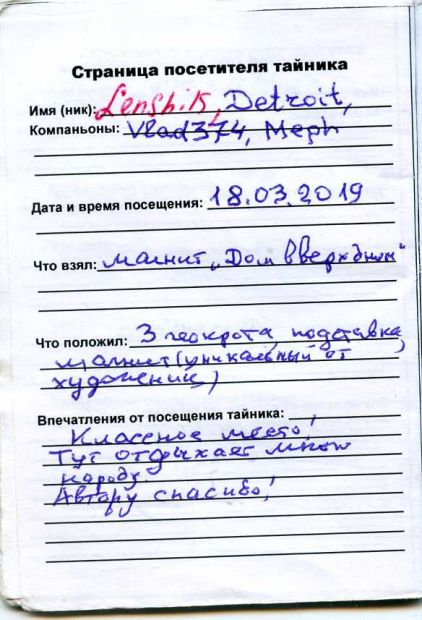 Страница посетителя тайника
Имя (ник): Lenshik, Detroit,
Компаньоны: Vlad374, Meph
Дата и время посещения: 18.03.2019
Что взял: магнит „Дом вверх дном"
Что положил: 3 геокрота, подставка,
магнит (уникальный от
художник)
Впечатления от посещения тайника:
Классное место!
Тут отдыхает много
народу.
Автору спасибо!